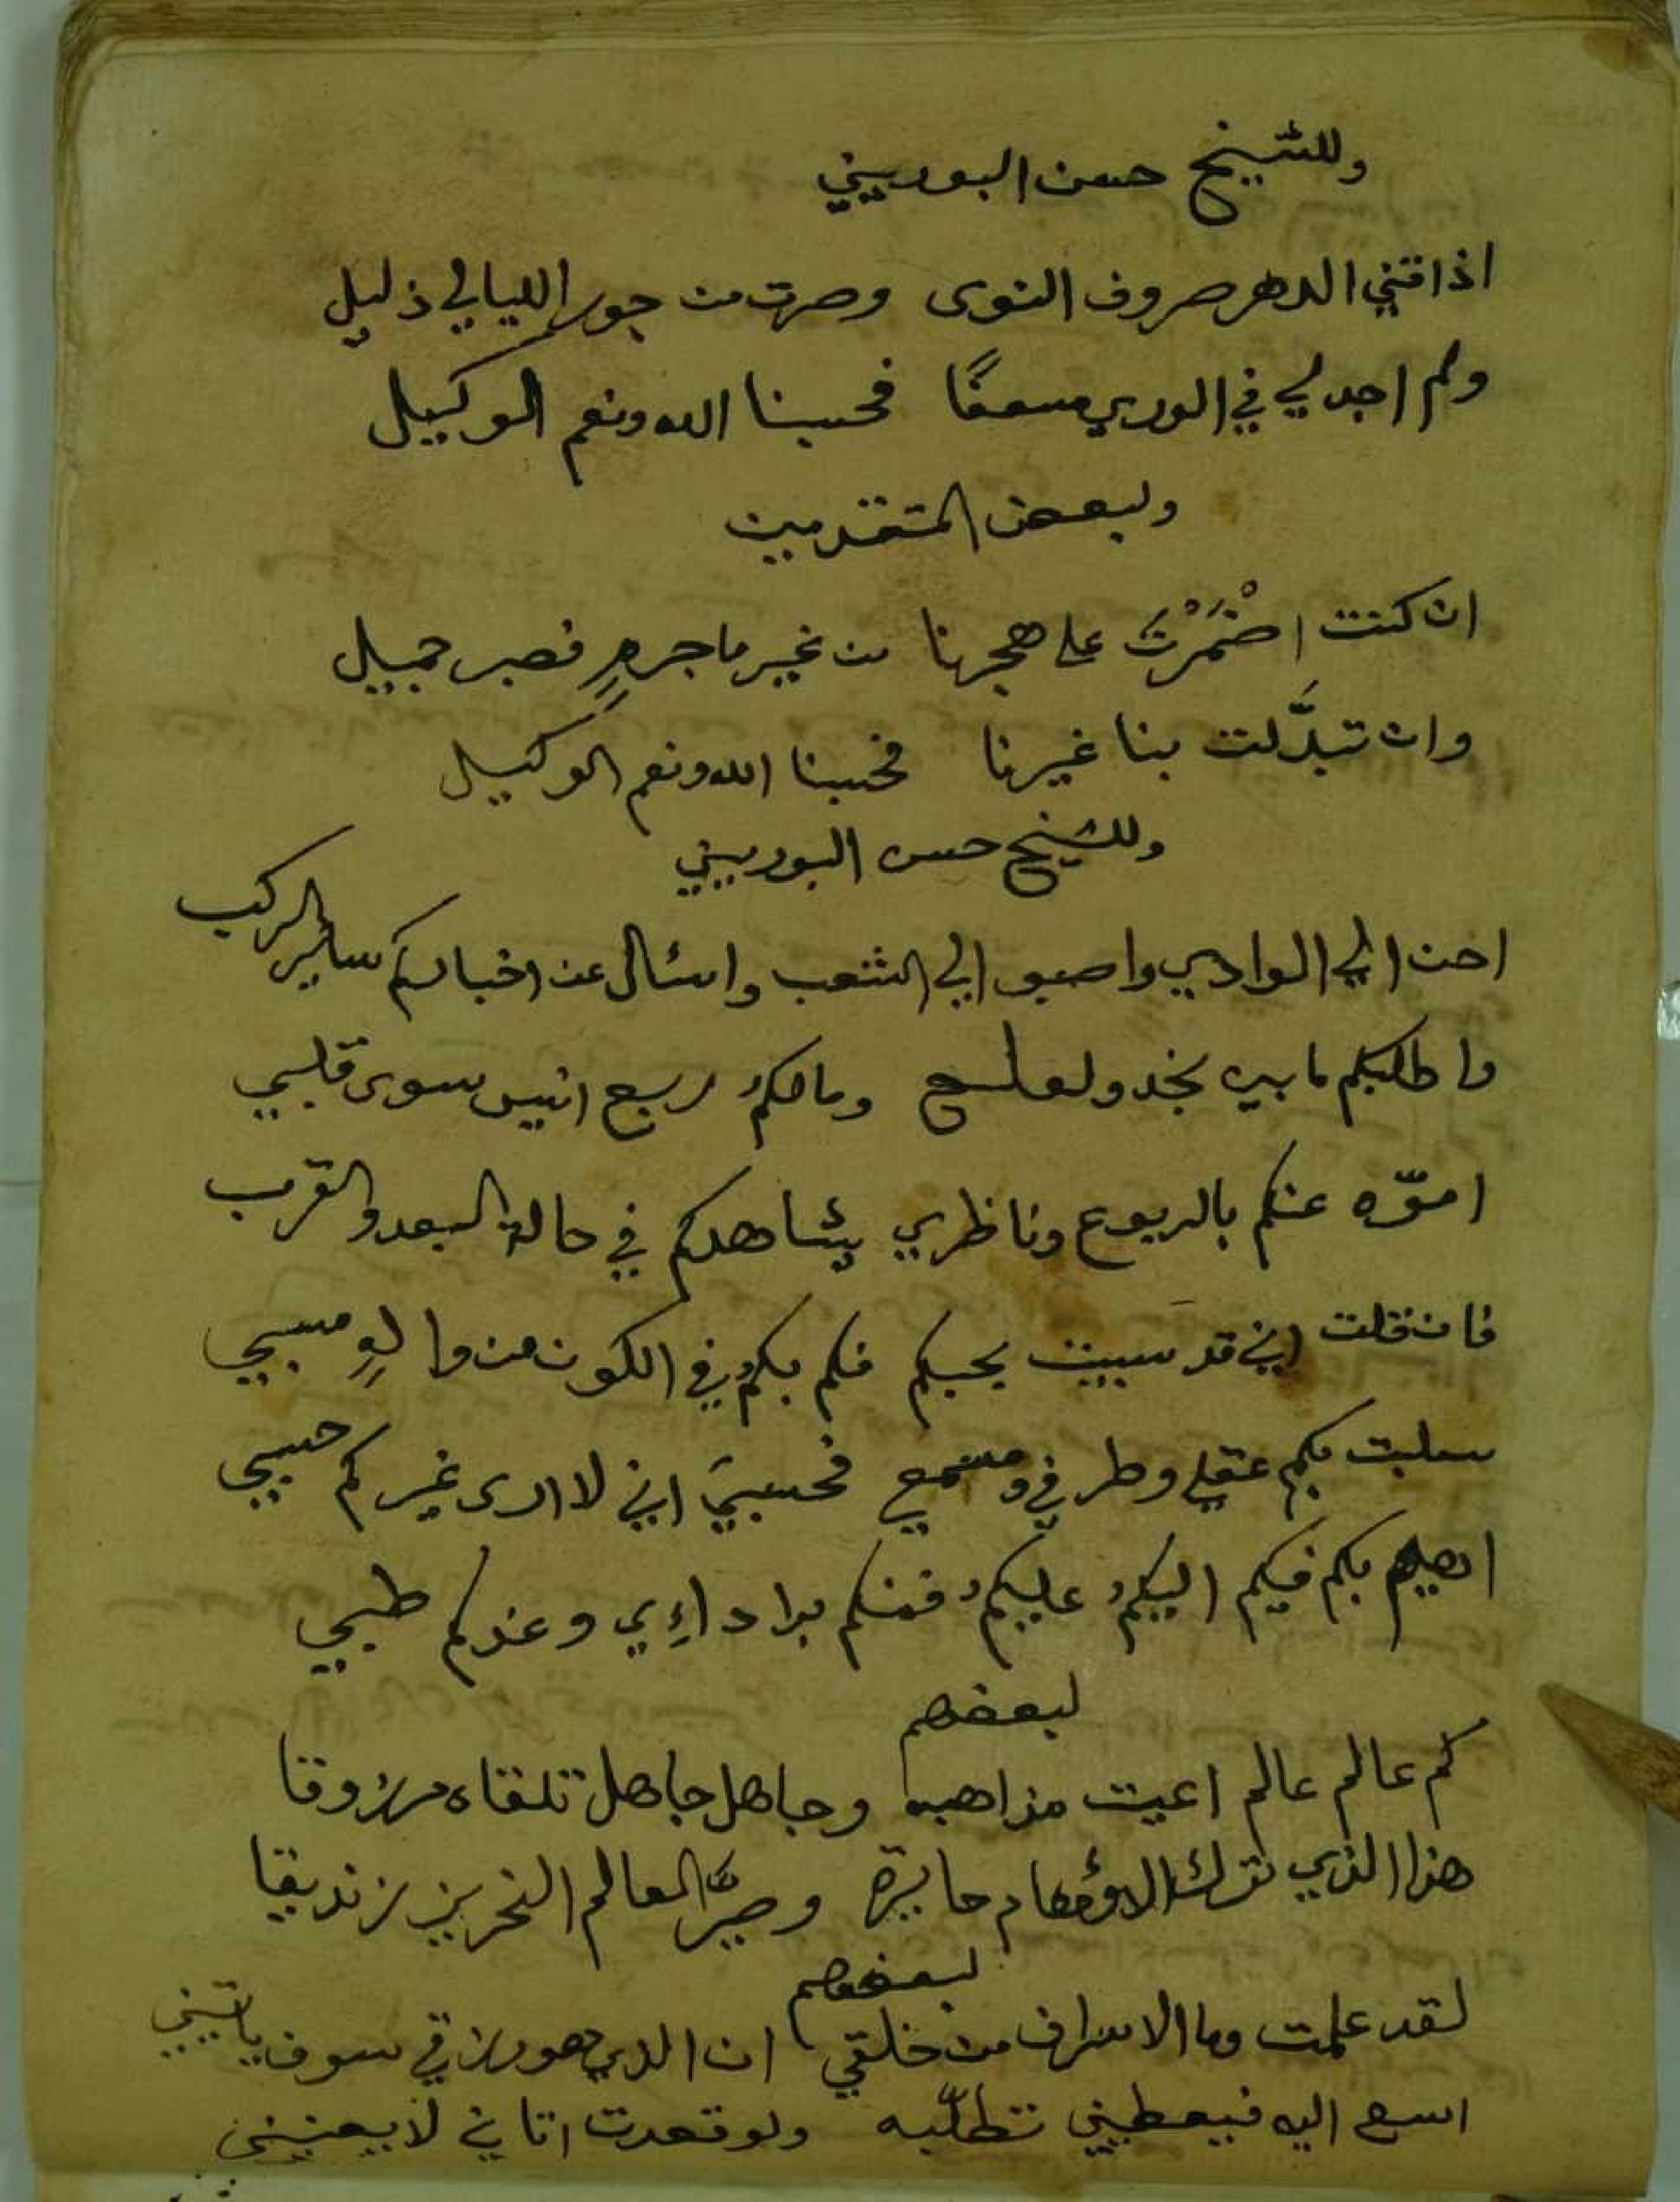 وللشيخ حسن البوريني
اذاقني الدهر صروف النوى وصرت من جور الليالي ذليل
ولم اجد لي في الوري مسعفًا فحسبنا الله ونعم الوكيل
ولبعض المتقدمين
ان كنت اضْمَرْتَ على هجرنا من غير ما جرمٍ فصبر جميل
وان تبدَّلت بنا غيرنا فحسبنا الله ونعم الوكيل
وللشيخ حسن البوريني
احن الي الوادي واصبو الي الشعب واسئال عن اخباركم سائر الركب
واطلبكم ما بين نجد ولعلع وما لكمُ ربع انيس سوى قلبي
اموّه عنكم بالربوع وناظري يشاهدكم في حالة البعد والقرب
فان قلت اني قد سبيت بحبكم فكم بكمُ في الكون من والهٍ مسبي
سلبت بكم عقلي وطرفي ومسمعي فحسبيَ اني لا ارى غيركم حسبي
اهيم بكم فيكم اليكمُ عليكمُ فمنكم بدا داءِي وعندكم طبي
لبعضهم
كم عالم عالم اعيت مذاهبه وجاهل جاهل تلقاه مرزوقا
هذا الذي ترك الاوهام حايرة وصيَّر العالم النحرير زنديقا
لبعضهم
لقد علمت وما الاسراف من خلقي ان الذي هو رزقي سوف ياتيني
اسعى اليه فيعطيني تطلّبه ولو قعدت اتاني لا يعنيني